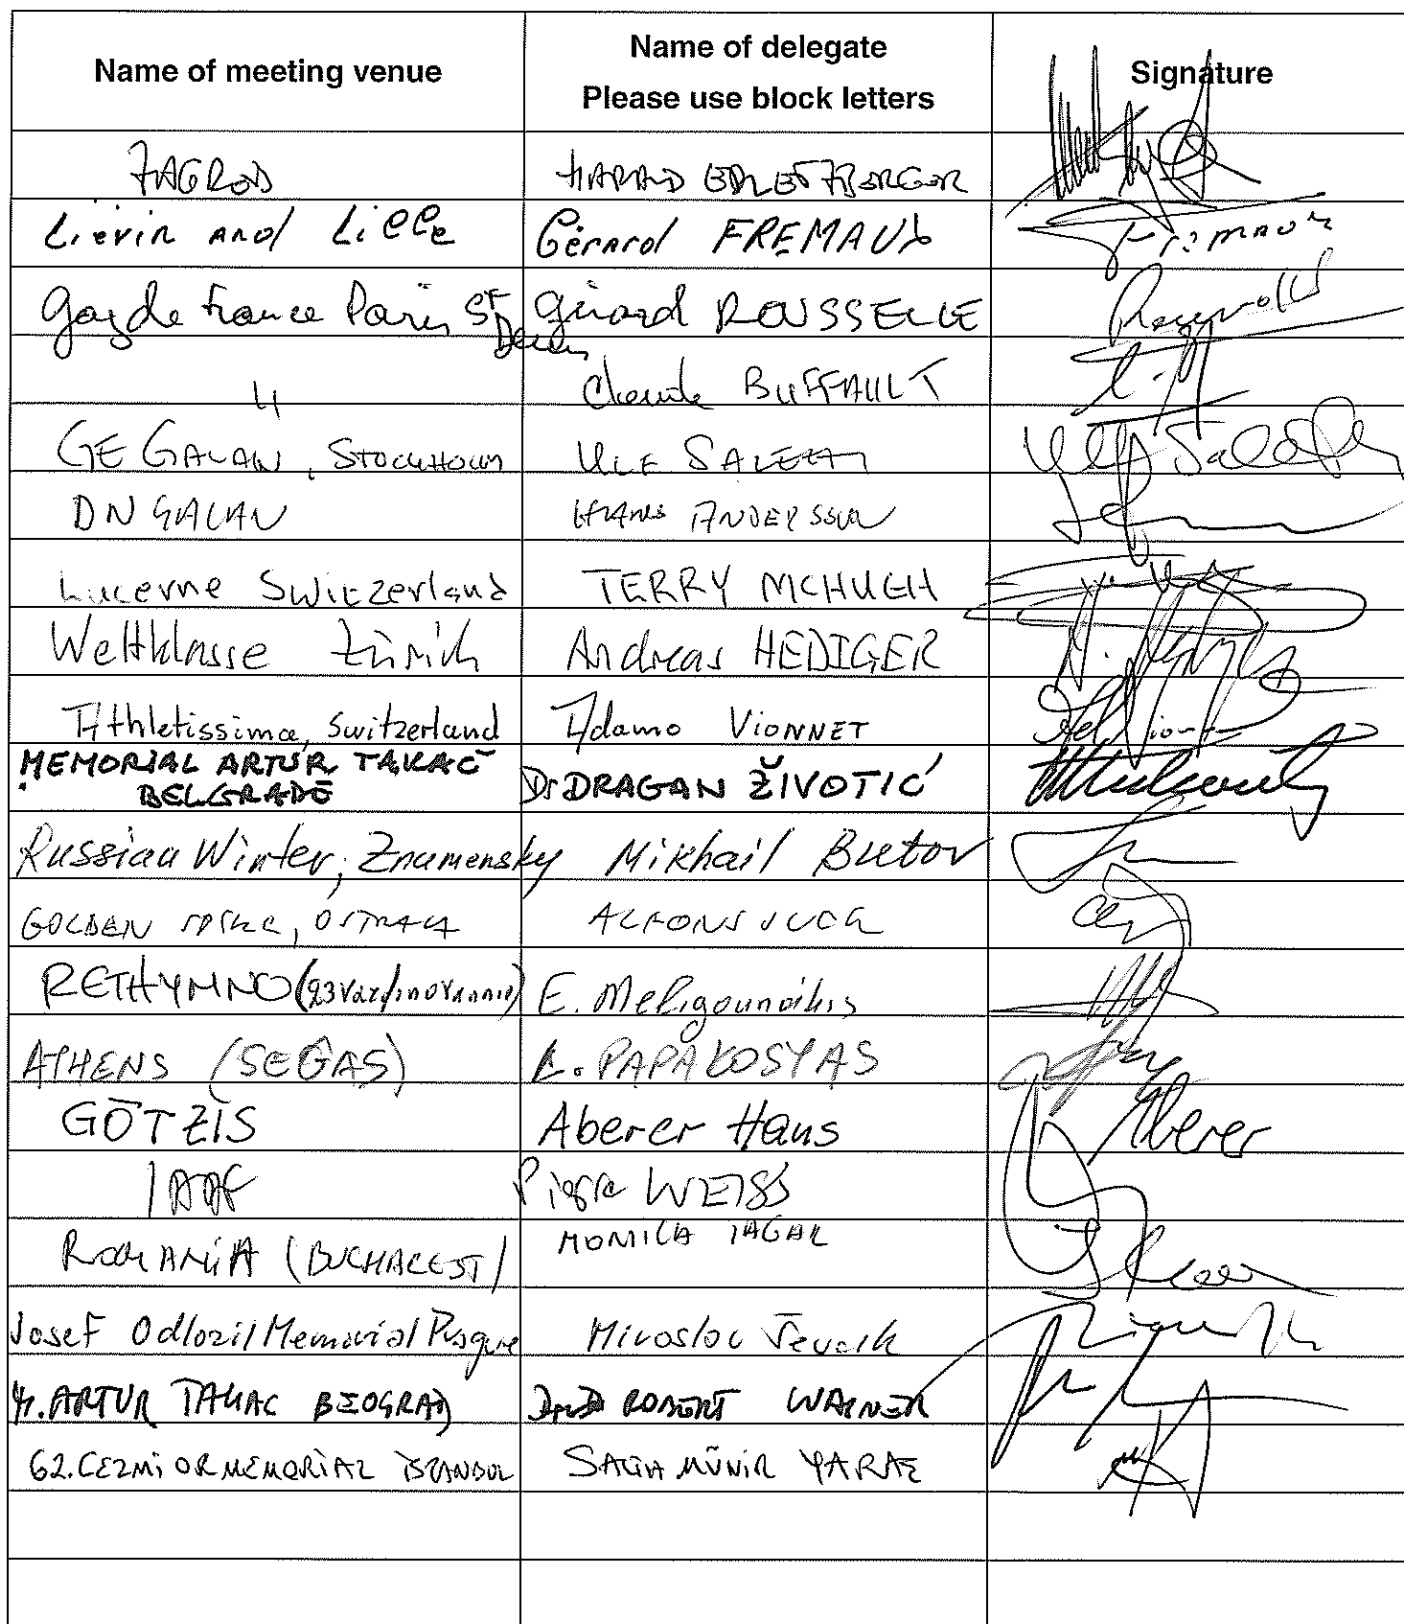 Name of meeting venue
Name of delegate
Please use block letters
Signature
ZAGREB HARALD EDLETZBERGER
Liévin and Lille Gérard FREMAUX Fremaux
Gaz de France Paris St Denis Gérard ROUSSELLE
" Claude BUFFAULT
GE GALAN, STOCKHOLM ULF SALETTI
DN GALAN HANS ANDERSSON
Lucerne Switzerland TERRY MCHUGH
Weltklasse Zürich Andreas HEDIGER
Athletissima, Switzerland Adamo VIONNET
MEMORIAL ARTUR TAKAČ
BELGRADE Dr DRAGAN ŽIVOTIĆ
Russian Winter, Znamensky Mikhail Butov
GOLDEN SPIKE, OSTRAVA ALFONS JUCK
RETHYMNO E. Meligounakis
ATHENS (SEGAS) PAPAKOSTAS
GÖTZIS Aberer Hans Aberer
IAAF Pierre WEISS
ROMANIA (BUCHAREST) MONICA IAGAR
Josef Odlozil Memorial Prague Miroslav Ševcik
ARTUR TAKAC BEOGRAD ROBERT WAGNER
62. CEZMi OR MEMORiAL iSTANBUL SALiH MÜNiR YARAS